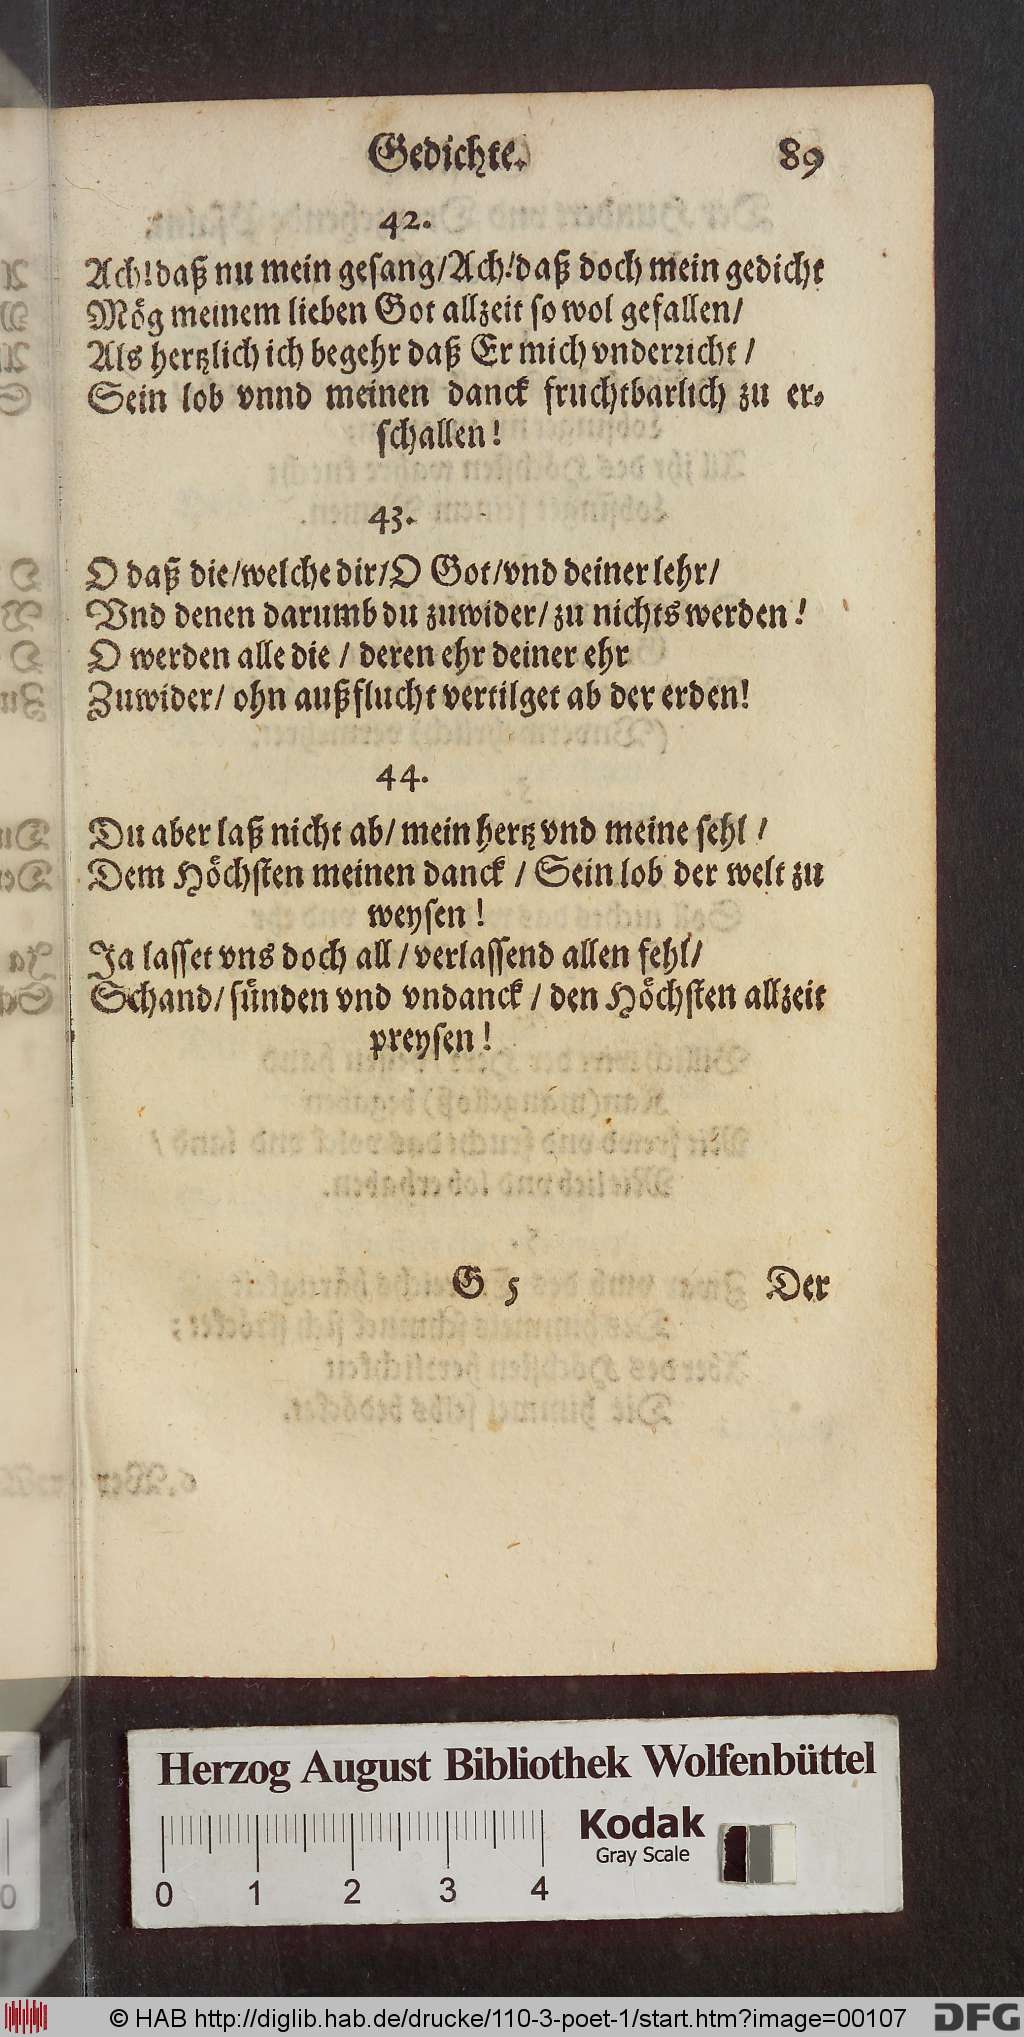 Gedichte. 89
42.
Ach! daß nu mein gesang/Ach! daß doch mein gedicht
Mög meinem lieben Got allzeit so wol gefallen/
Als hertzlich ich begehr daß Er mich vnderricht /
Sein lob vnnd meinen danck fruchtbarlich zu er-
schallen!
43.
O daß die/welche dir/O Got/vnd deiner lehr/
Vnd denen darumb du zuwider/ zu nichts werden!
O werden alle die / deren ehr deiner ehr
Zuwider/ ohn außflucht vertilget ab der erden!
44.
Du aber laß nicht ab/ mein hertz vnd meine sehl /
Dem Höchsten meinen danck / Sein lob der welt zu
weysen!
Ja lasset vns doch all / verlassend allen fehl/
Schand/ sünden vnd vndanck / den Höchsten allzeit
preysen!
G 5 Der
Herzog August Bibliothek Wolfenbüttel
Kodak
Gray Scale
0 1 2 3 4
© HAB http://diglib.hab.de/drucke/110-3-poet-1/start.htm?image=00107
DFG